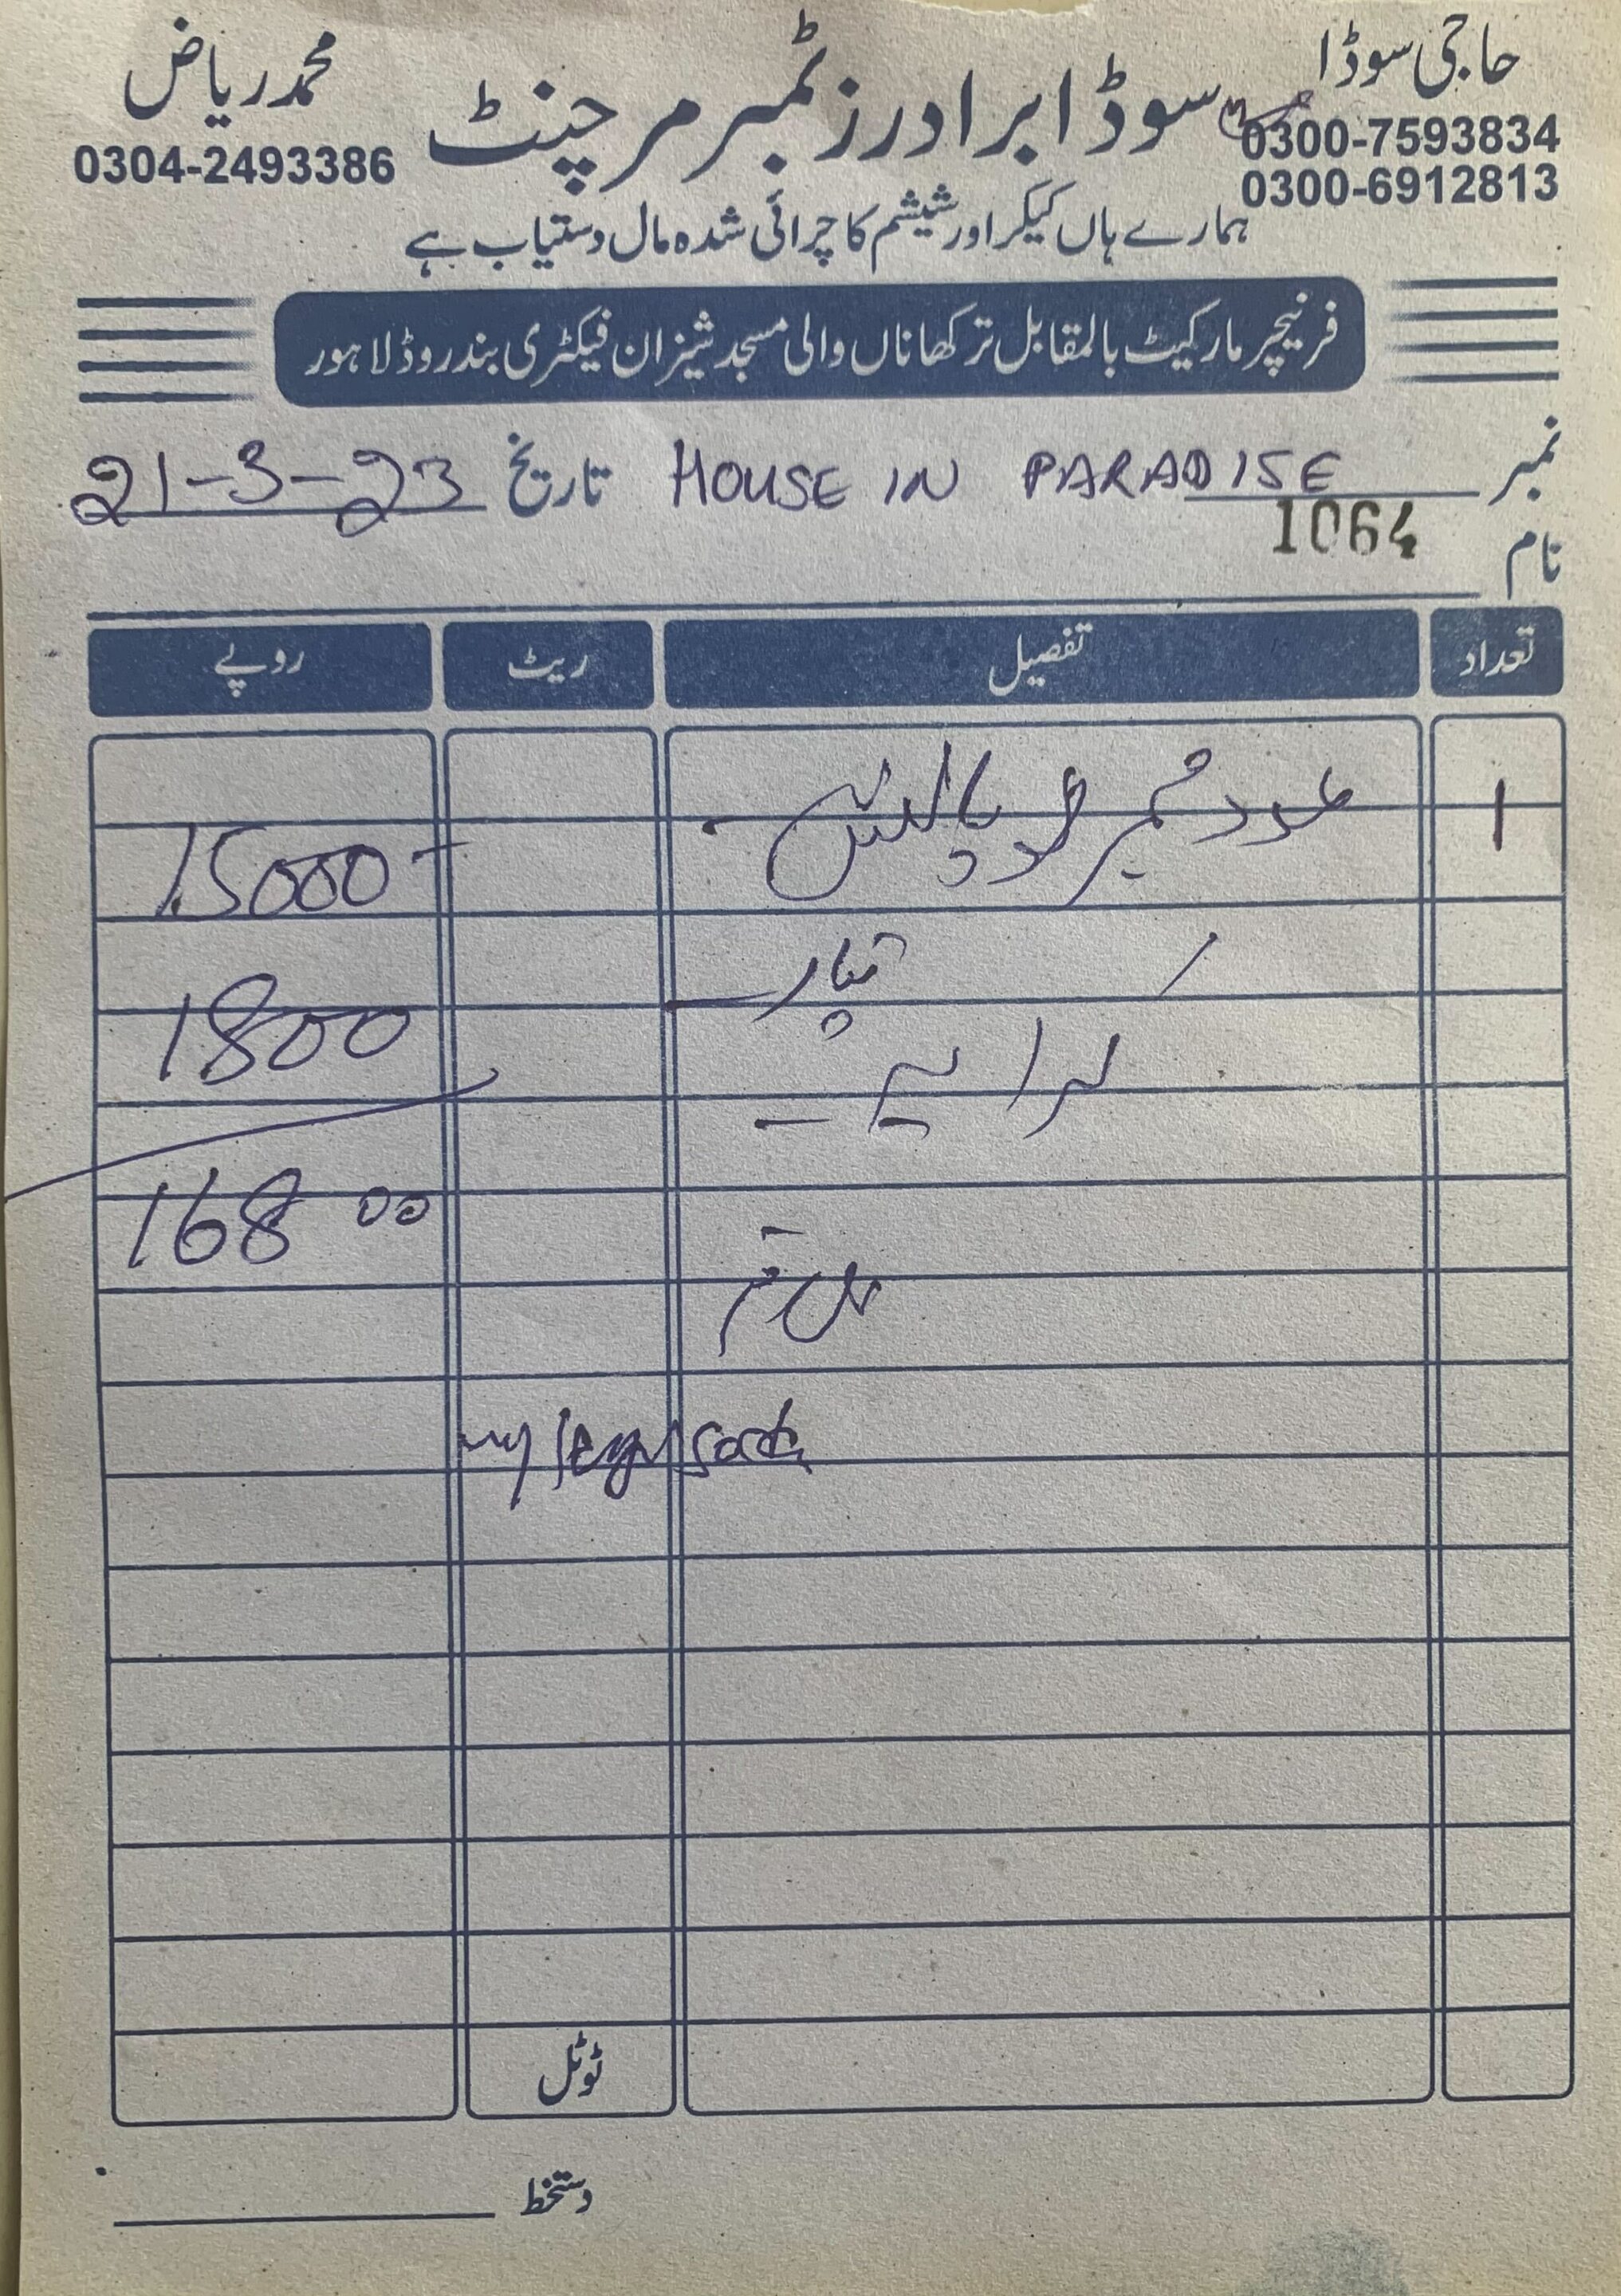 حاجی سوڈا
0300-7593834
0300-6912813
سوڈا برادرز ٹمبر مرچنٹ
محمد ریاض
0304-2493386
ہمارے ہاں کیکر اور شیشم کا چرائی شدہ مال دستیاب ہے
فرنیچر مارکیٹ بالمقابل ترکھاناں والی مسجد شیزان فیکٹری بند روڈ لاہور
نمبر HOUSE IN PARADISE تاریخ 21-3-23
1064
نام
تعداد تفصیل ریٹ روپے
1 عدد
15000
تیار
کرایہ 1800
16800
کل رقم
ٹوٹل
دستخط